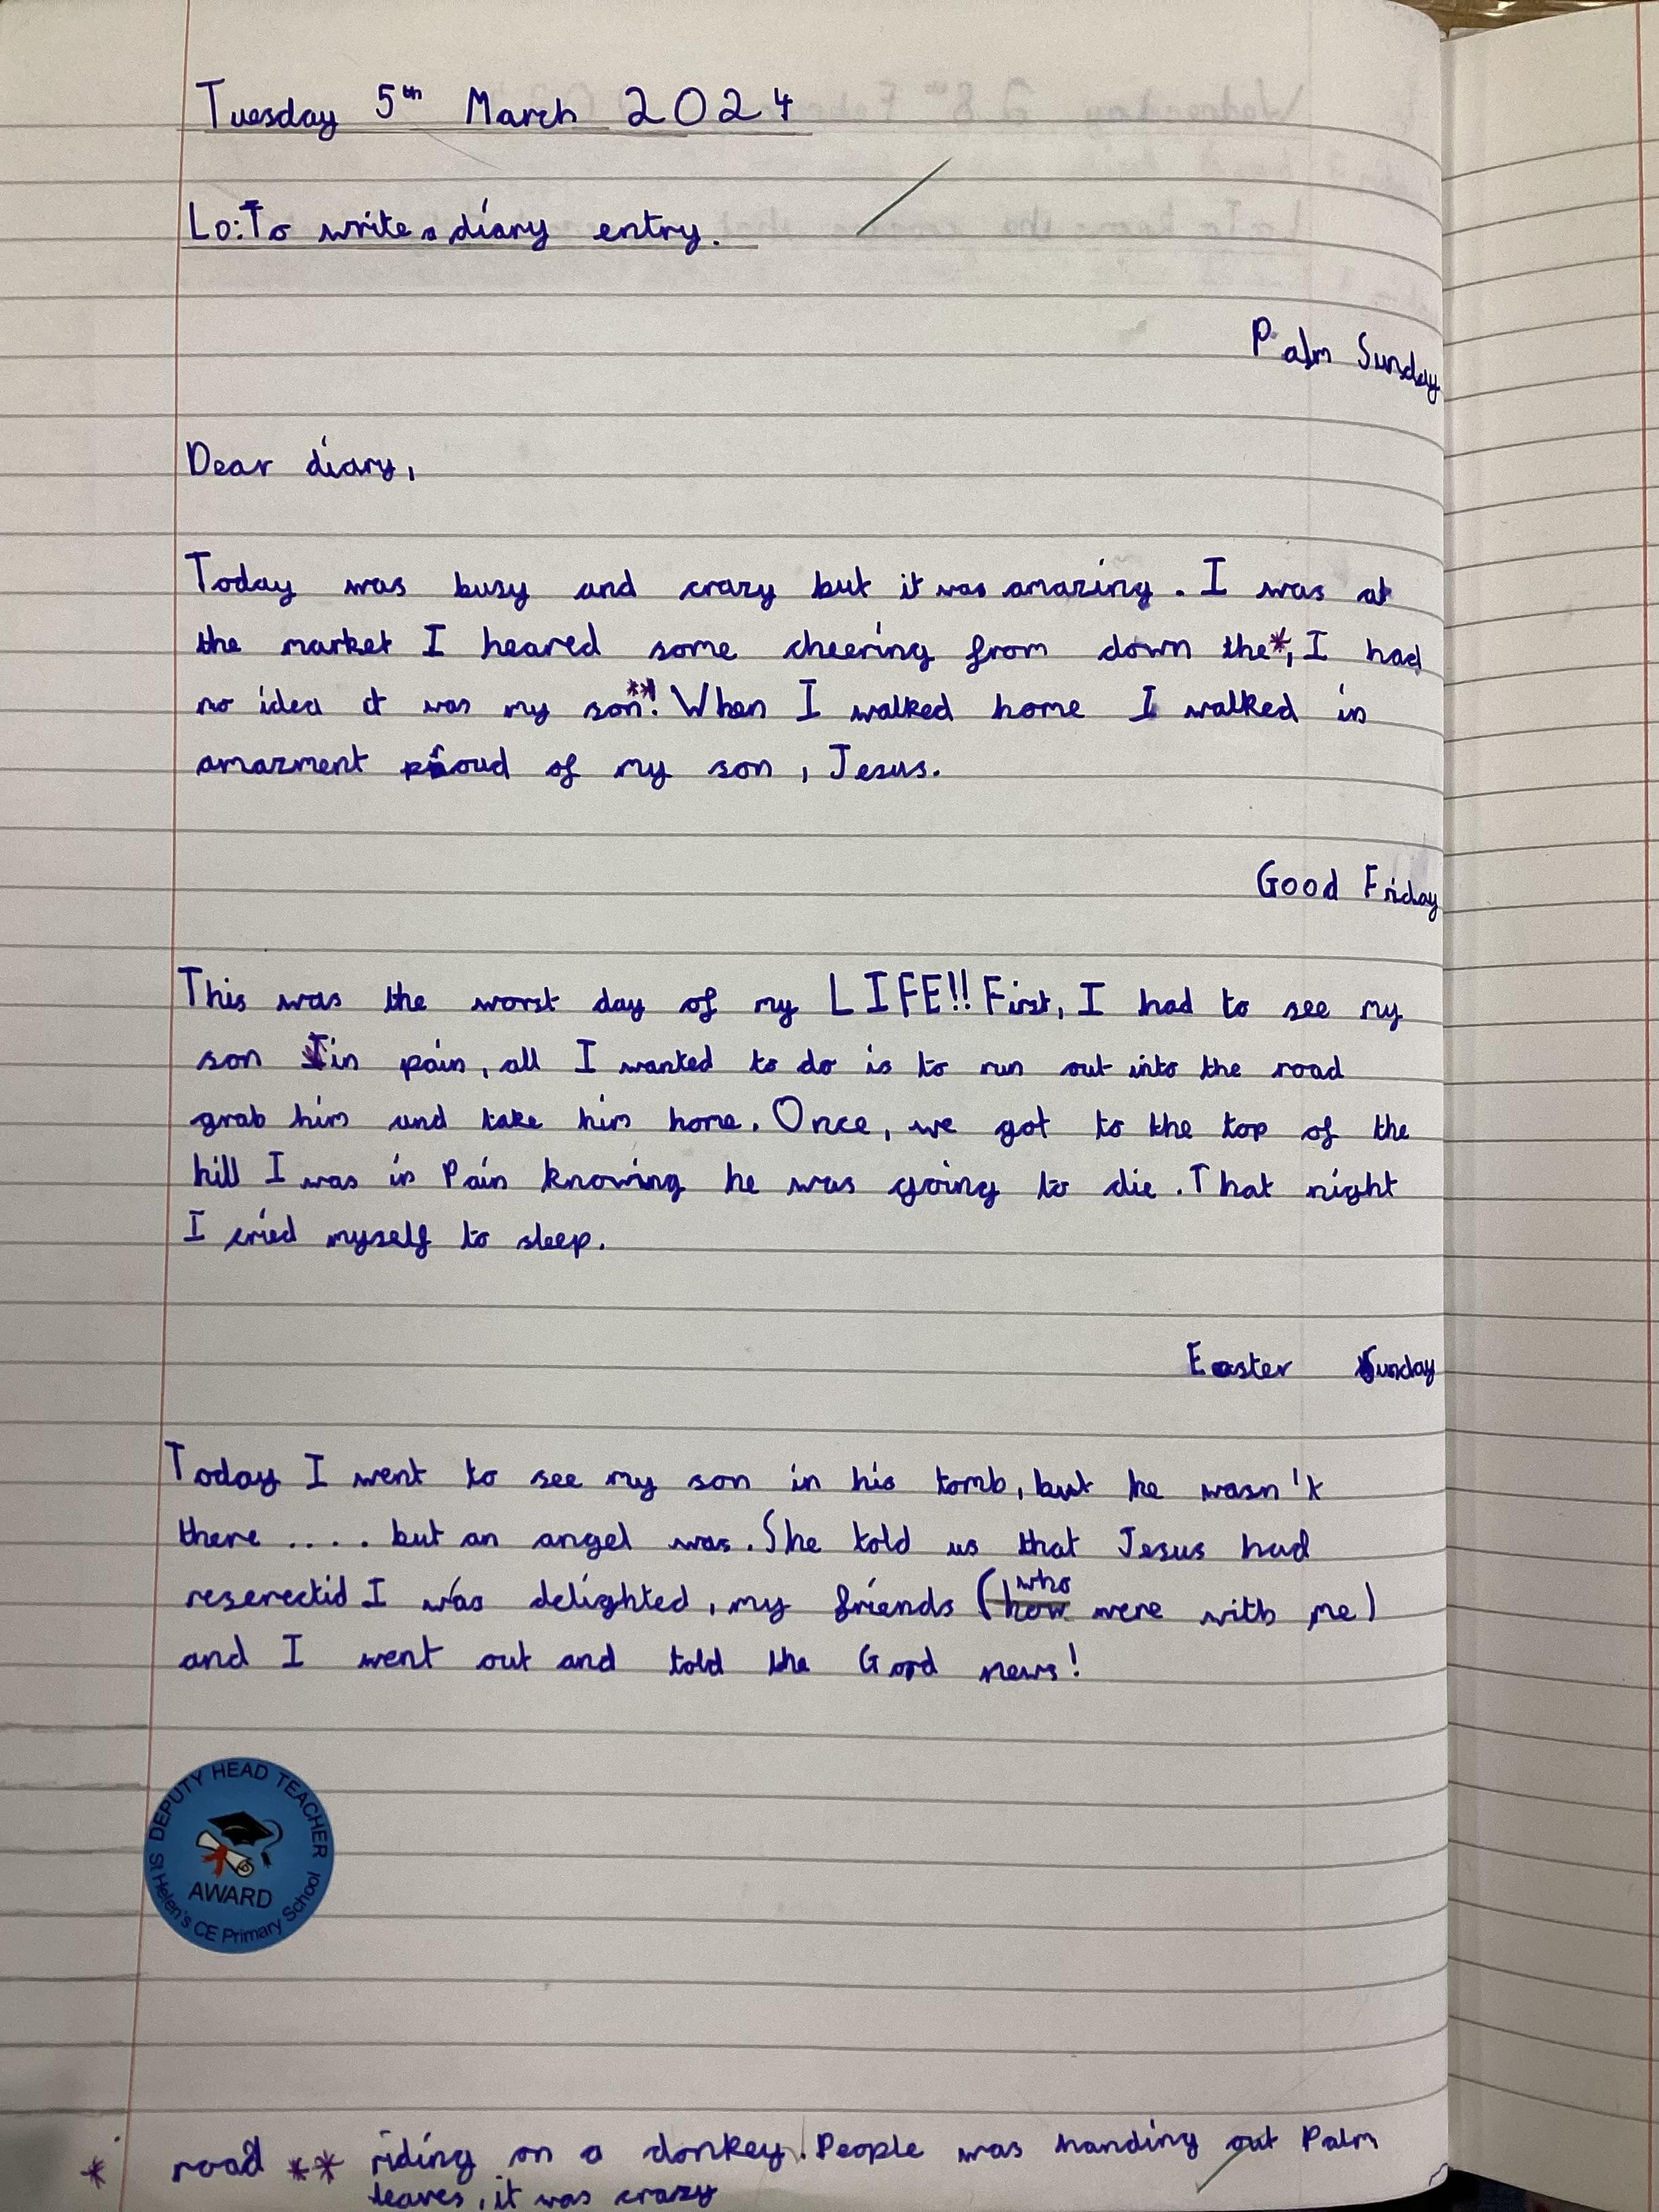 Tuesday 5th March 2024
Lo: To write a diary entry.
Palm Sunday
Dear diary,
Today was busy and crazy but it was amazing. I was at
the market I heared some cheering from down the*, I had
no idea it was my son**! When I walked home I walked in
amazment proud of my son, Jesus.
Good Friday
This was the worst day of my LIFE!! First, I had to see my
son in pain, all I wanted to do is to run out into the road
grab him and take him home. Once, we got to the top of the
hill I was in Pain knowing he was going to die. That night
I cried myself to sleep.
Easter Sunday
Today I went to see my son in his tomb, but he wasn't
there .... but an angel was. She told us that Jesus had
reserectid I was delighted, my friends (how who were with me)
and I went out and told the Good news!
DEPUTY HEAD TEACHER
AWARD
St Helen's CE Primary School
* road ** riding on a donkey. People was handing out Palm
leaves, it was crazy